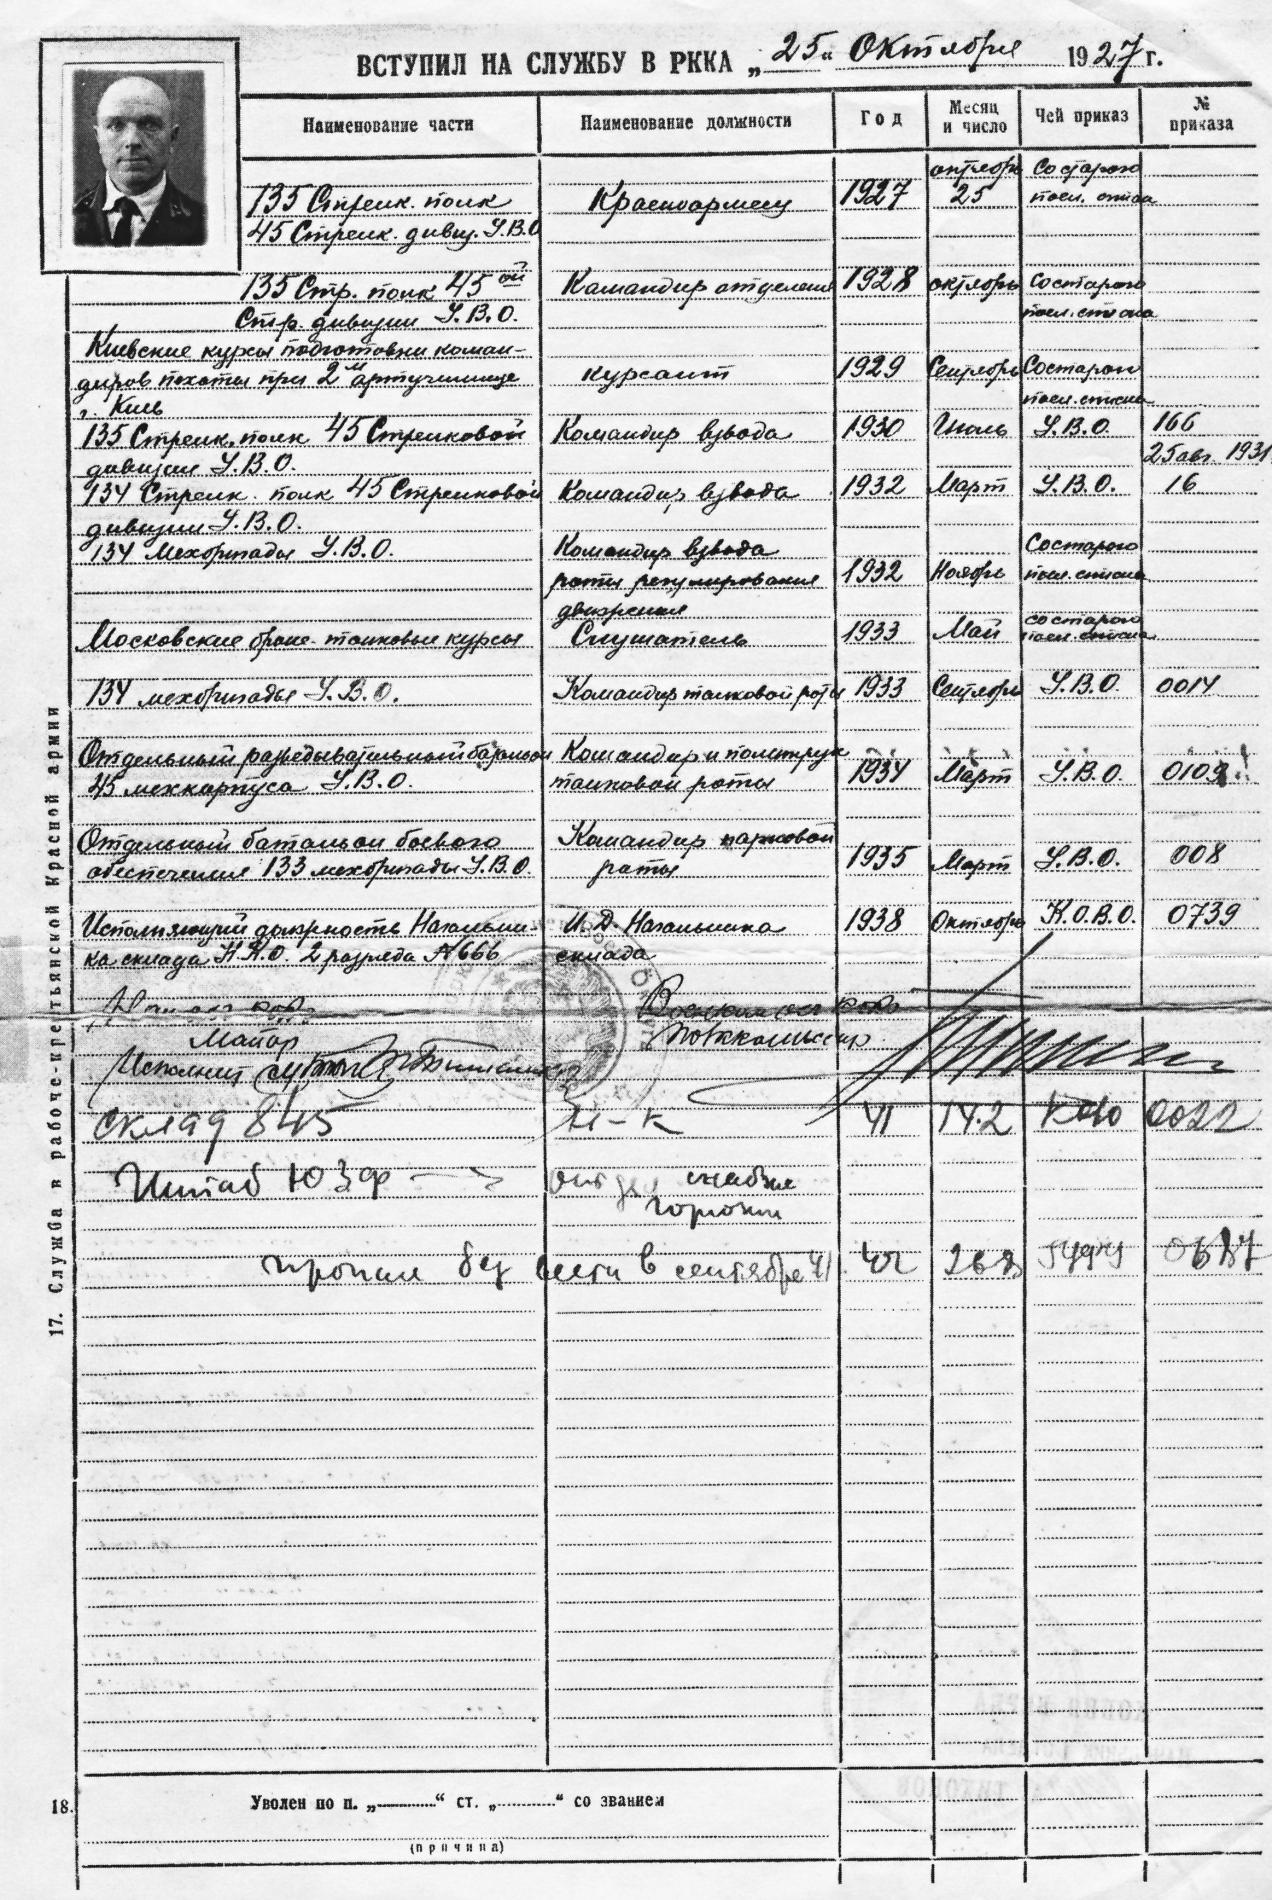 ВСТУПИЛ НА СЛУЖБУ В РККА „25“ Октября 1927 г.
Наименование части Наименование должности Год Месяц и число Чей приказ № приказа
135 Стрелк. полк Красноармеец 1927 октябрь 25 Со старого посл. списка
45 Стрелк. дивиз. У.В.О.
135 Стр. полк 45ой Командир отделения 1928 октябрь Со старого посл. списка
Стр. дивизии У.В.О.
Киевские курсы подготовки коман-
диров пехоты при 2м артучилище курсант 1929 Сентябрь Со старого посл. списка
г. Киев
135 Стрелк. полк 45 Стрелковой Командир взвода 1930 Июль У.В.О. 166
дивизии У.В.О. 25 авг. 1931
134 Стрелк. полк 45 Стрелковой Командир взвода 1932 Март У.В.О. 16
дивизии У.В.О.
134 Мехбригады У.В.О. Командир взвода Со старого
роты регулирования 1932 Ноябрь посл. списка
движения
Московские броне-танковые курсы Слушатель 1933 Май Со старого посл. списка
134 мехбригады У.В.О. Командир танковой роты 1933 Сентябрь У.В.О. 0014
Отдельный разведывательный батальон Командир и политрук
45 мехкорпуса У.В.О. танковой роты 1934 Март У.В.О.
Отдельный батальон боевого Командир парковой
обеспечения 133 мехбригады У.В.О. роты 1935 Март У.В.О. 008
Исполняющий должность Начальни- И.Д. Начальника 1938 Октябрь К.О.В.О. 0739
ка склада Н.К.О. 2 разряда №666 склада
Майор
склад 845 Н-к 41 14.2 КОВО 0022
Штаб ЮЗФ отдел снабже
горючим
пропал без вести в сентябре 41
17. Служба в рабоче-крестьянской Красной армии
18. Уволен по п. „———“ ст. „———“ со званием
(причина)